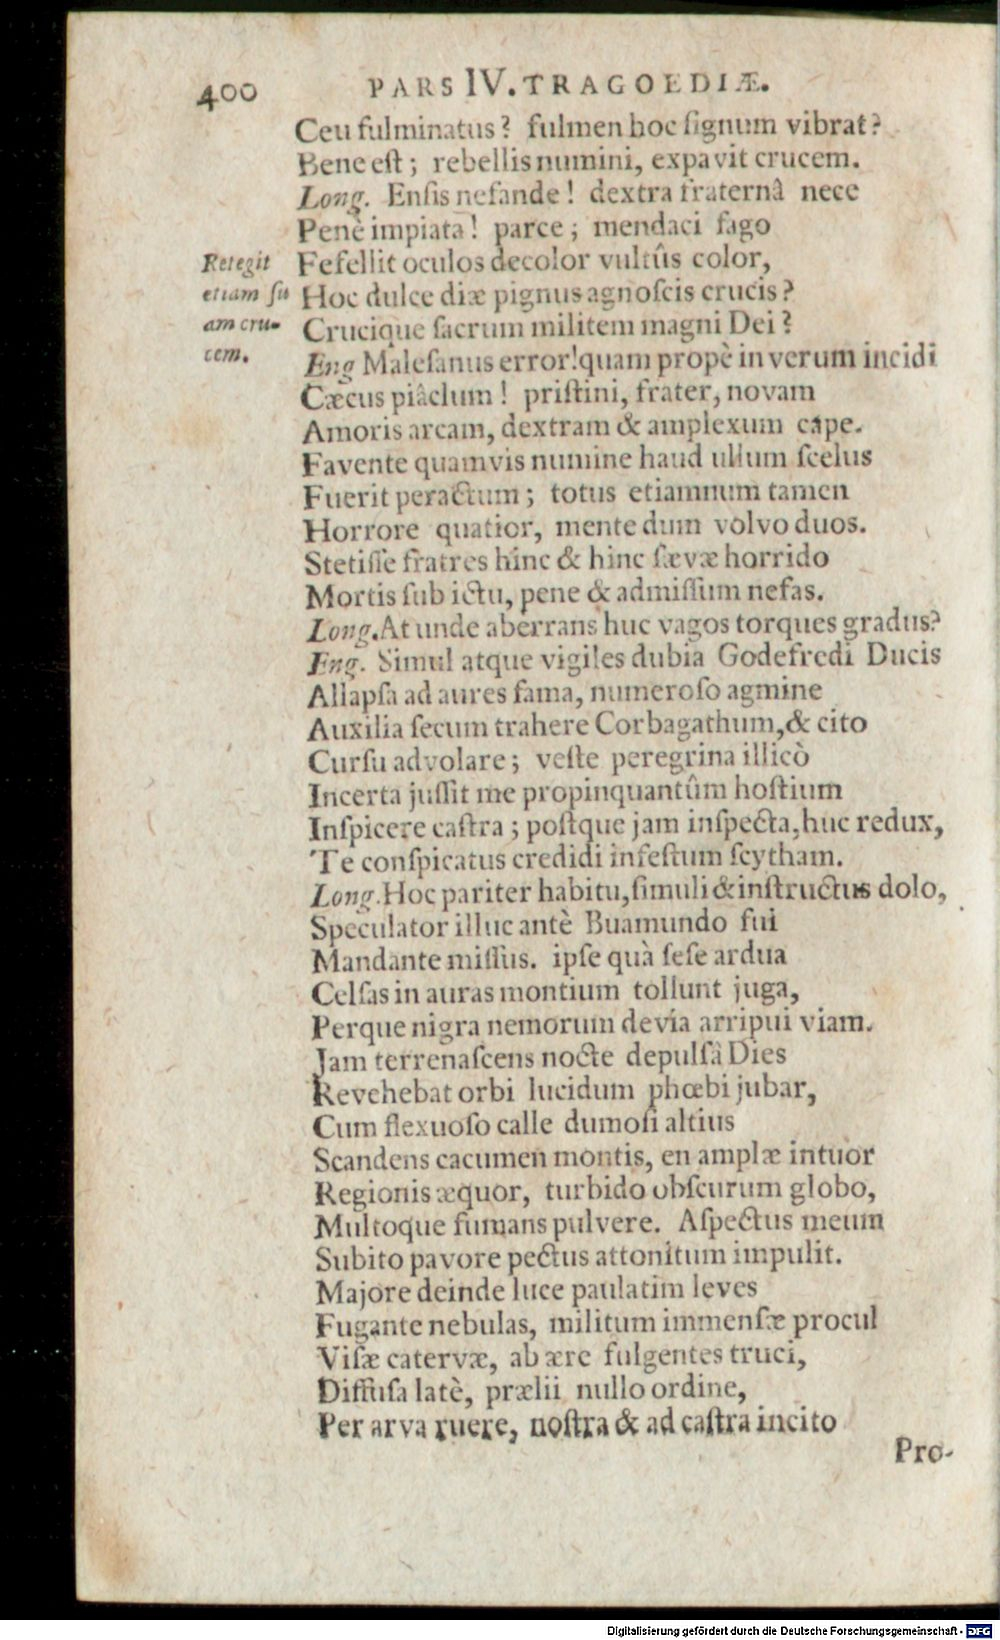 400 PARS IV. TRAGOEDIÆ.
Ceu fulminatus? fulmen hoc ſignum vibrat?
Bene eſt; rebellis numini, expavit crucem.
Long. Enſis nefande! dextra fraternâ nece
Penè impiata! parce; mendaci ſago
Retegit etiam ſuam crucem.
Fefellit oculos decolor vultûs color,
Hoc dulce diæ pignus agnoſcis crucis?
Crucique ſacrum militem magni Dei?
Eng Maleſanus error! quam propè in verum incidi
Cæcus piâclum! priſtini, frater, novam
Amoris arcam, dextram & amplexum cape.
Favente quamvis numine haud ullum ſcelus
Fuerit peractum; totus etiamnum tamen
Horrore quatior, mente dum volvo duos.
Stetiſſe fratres hinc & hinc ſævæ horrido
Mortis ſub ictu, pene & admiſſum nefas.
Long. At unde aberrans huc vagos torques gradus?
Eng. Simul atque vigiles dubia Godefredi Ducis
Allapſa ad aures fama, numeroſo agmine
Auxilia ſecum trahere Corbagathum, & cito
Curſu advolare; veſte peregrina illicò
Incerta juſſit me propinquantûm hoſtium
Inſpicere caſtra; poſtque jam inſpecta, huc redux,
Te conſpicatus credidi infeſtum ſcytham.
Long. Hoc pariter habitu, ſimuli & inſtructus dolo,
Speculator illuc antè Buamundo fui
Mandante miſſus. ipſe quà ſeſe ardua
Celſas in auras montium tollunt juga,
Perque nigra nemorum devia arripui viam.
Jam terrenaſcens nocte depulſâ Dies
Revehebat orbi lucidum phœbi jubar,
Cum flexuoſo calle dumoſi altius
Scandens cacumen montis, en amplæ intuor
Regionis æquor, turbido obſcurum globo,
Multoque fumans pulvere. Aſpectus meum
Subito pavore pectus attonitum impulit.
Majore deinde luce paulatim leves
Fugante nebulas, militum immenſæ procul
Viſæ catervæ, ab ære fulgentes truci,
Diffuſa latè, prælii nullo ordine,
Per arva ruere, noſtra & ad caſtra incito
Pro-
Digitalisierung gefördert durch die Deutsche Forschungsgemeinschaft - DFG